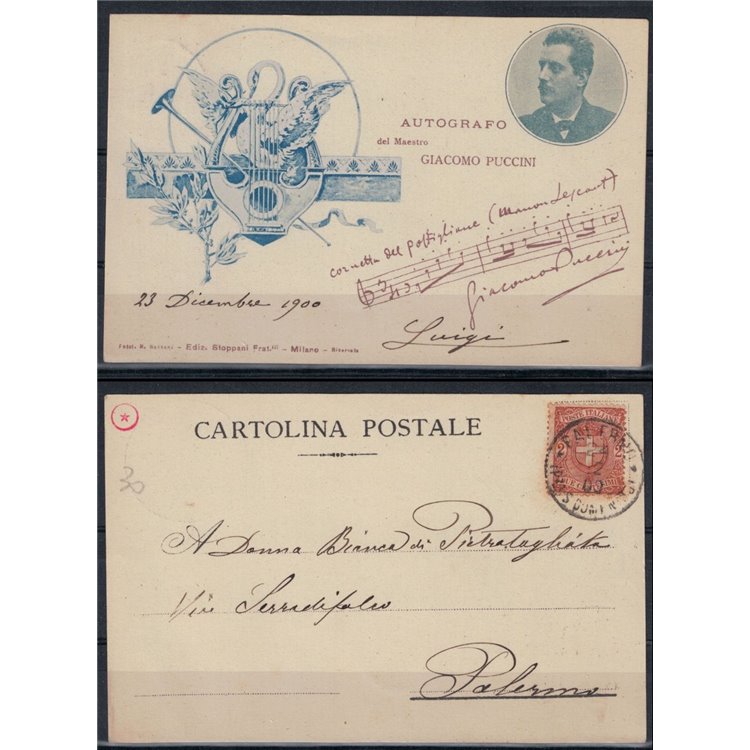 AUTOGRAFO
del Maestro
GIACOMO PUCCINI
cornetta del postiglione (Manon Lescaut)
Giacomo Puccini
23 Dicembre 1900
Luigi
Ediz. Stoppani Frat.lli - Milano - Riservata
CARTOLINA POSTALE
POSTE ITALIANE
PALERMO
30
A Donna Bianca di Pietratagliata
Via Serradifalco
Palermo